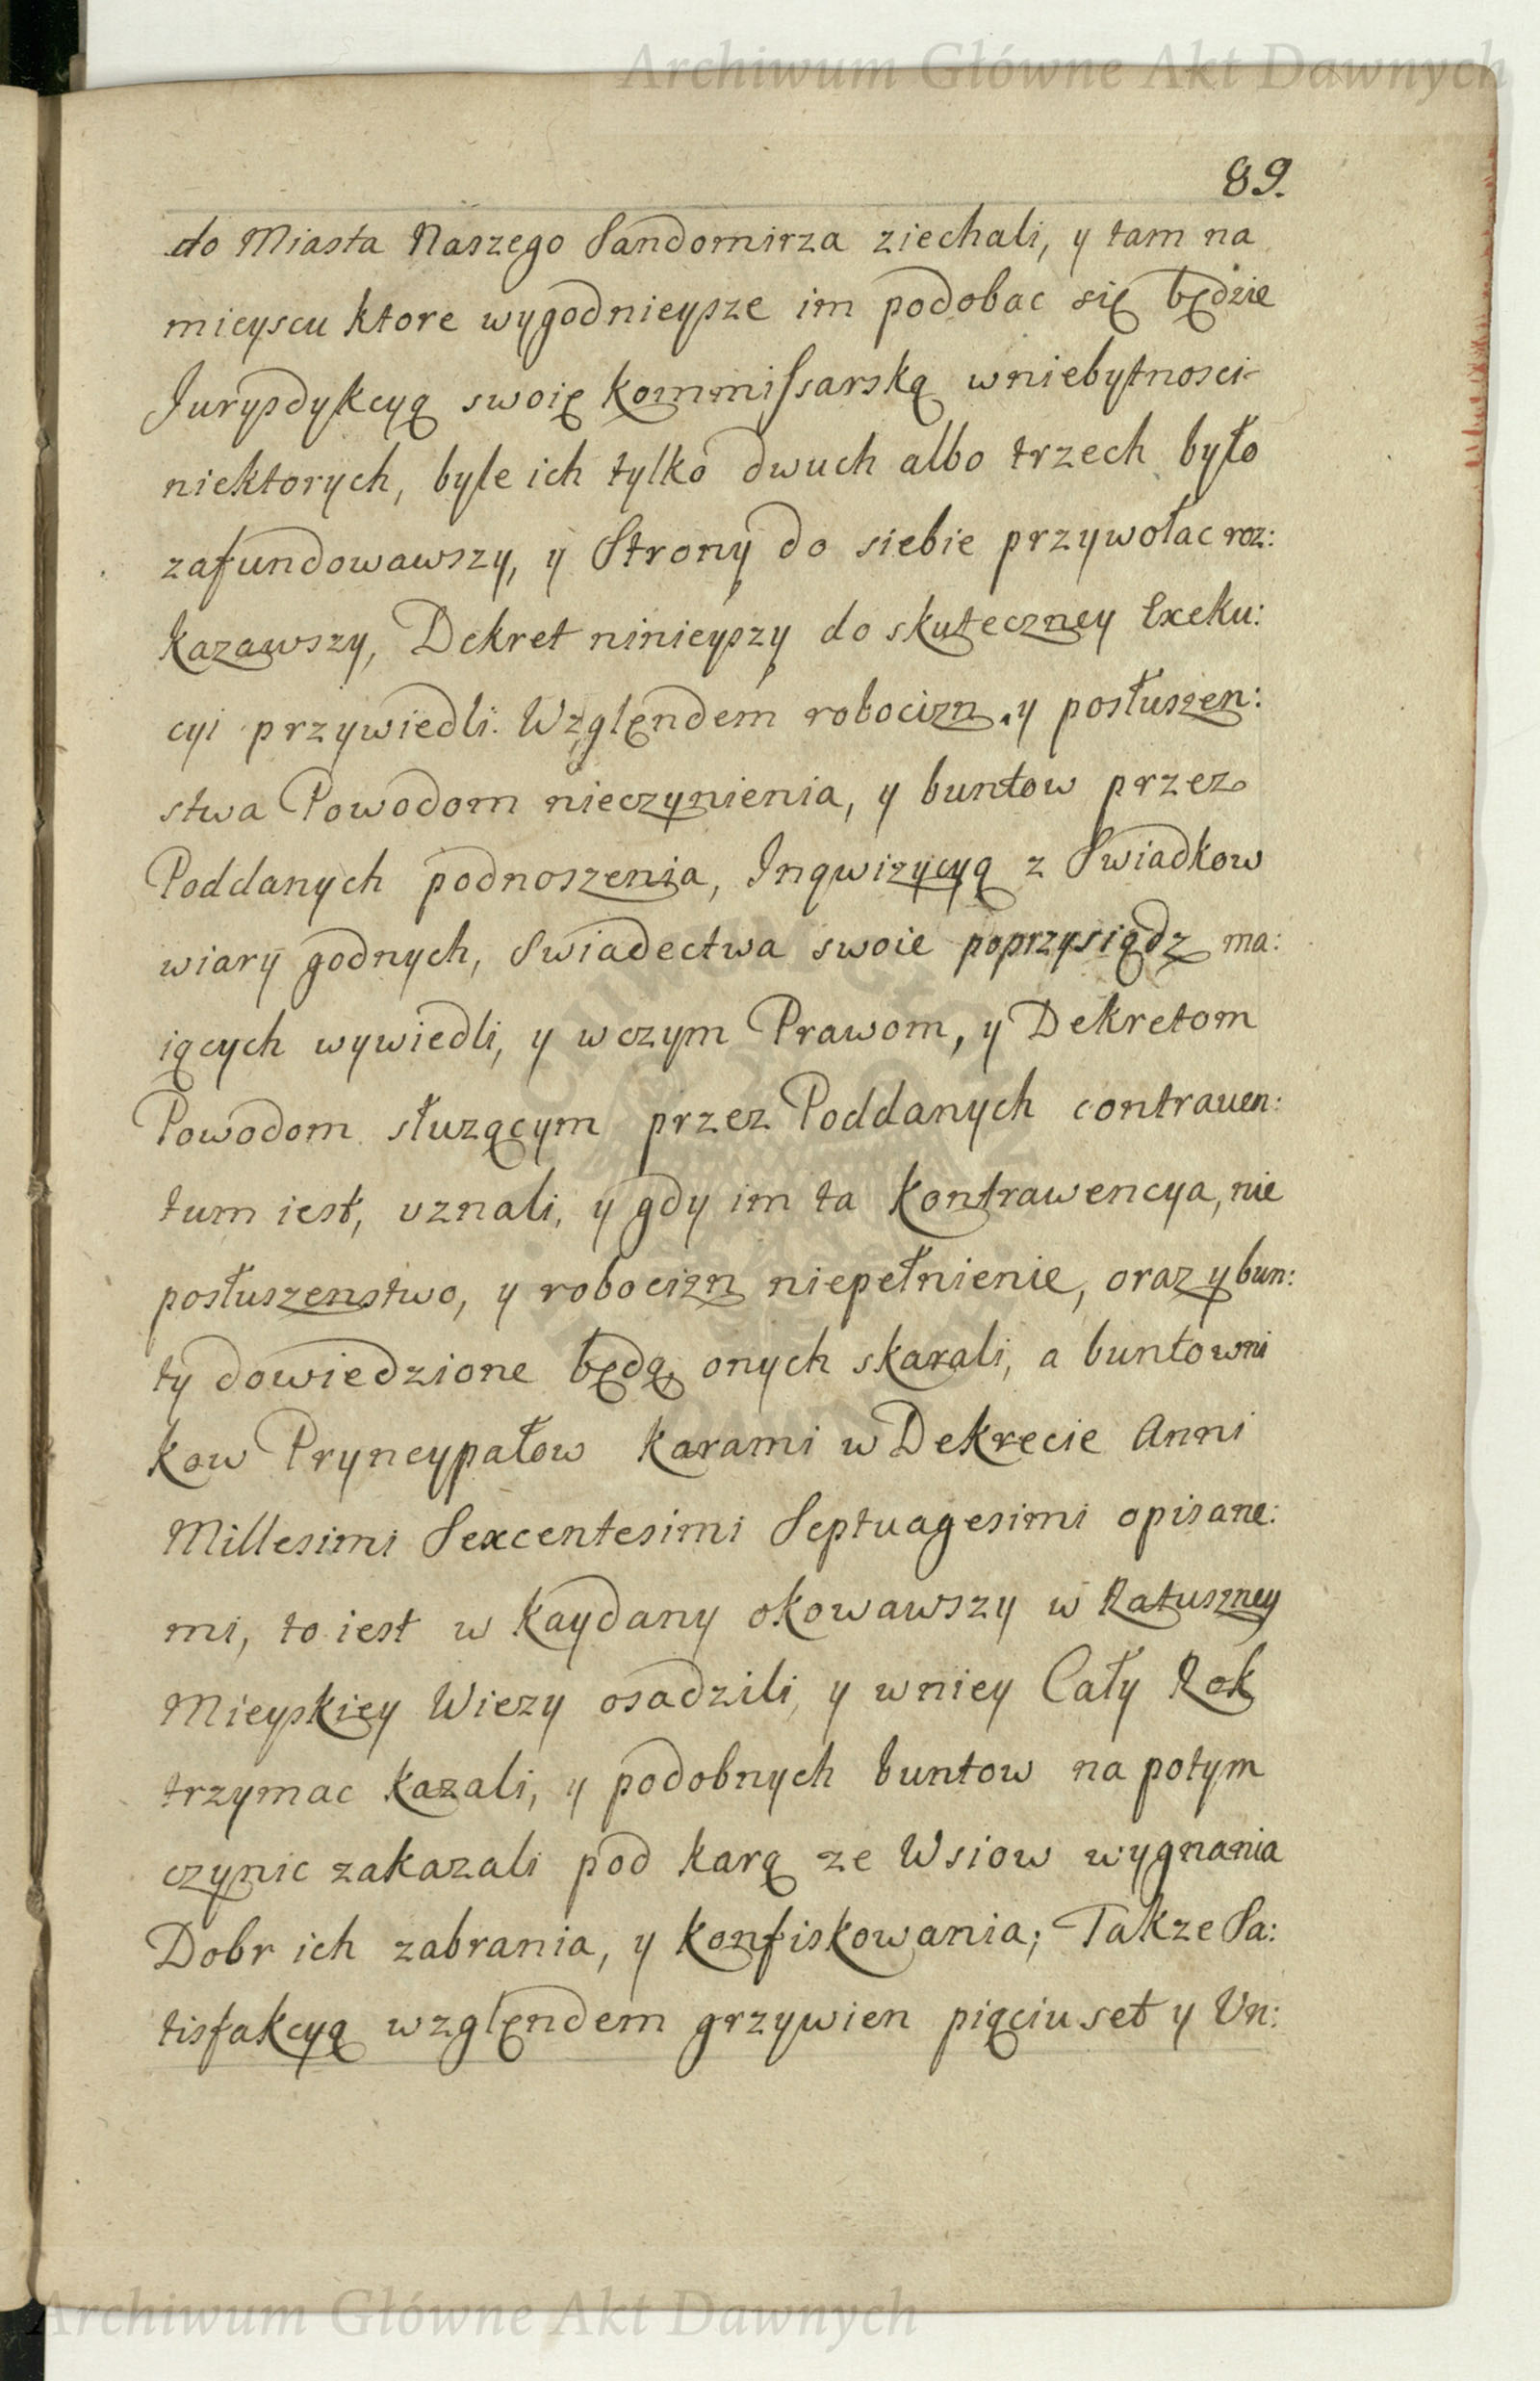 Archiwum Główne Akt Dawnych
89.
do Miasta Naszego Sandomirza ziechali, y tam na
mieyscu ktore wygodnieysze im podobac się będzie
Jurysdykcyą swoię kommissarską wniebytnosci
niektorych, byle ich tylko dwuch albo trzech było
zafundowawszy, y Strony do siebie przywołac roz:
kazawszy, Dekret ninieyszy do skuteczney Exeku:
cyi przywiedli. Względem robocizn y posłuszen:
stwa Powodom nieczynienia, y buntow przez
Poddanych podnoszenia, Inqwizycyą z Swiadkow
wiary godnych, Swiadectwa swoie poprzysiądz ma:
iących wywiedli, y wczym Prawom, y Dekretom
Powodom słuzącym przez Poddanych contrauen:
tum iest, uznali, y gdy im ta kontrawencya, nie
posłuszenstwo, y robocizn niepełnienie, oraz y bun:
ty dowiedzione będą, onych skarali, a buntowni
kow Pryncypałow karami w Dekrecie Anni
Millesimi Sexcentesimi Septuagesimi opisane:
mi, to iest w kaydany okowawszy w Ratuszney
Mieyskiey Wiezy osadzili, y wniey Cały Rok
trzymac kazali, y podobnych buntow na potym
czynic zakazali pod karą ze Wsiow wygnania
Dobr ich zabrania, y konfiskowania; Takze Sa:
tisfakcyą względem grzywien piąciuset y Un:
Archiwum Główne Akt Dawnych